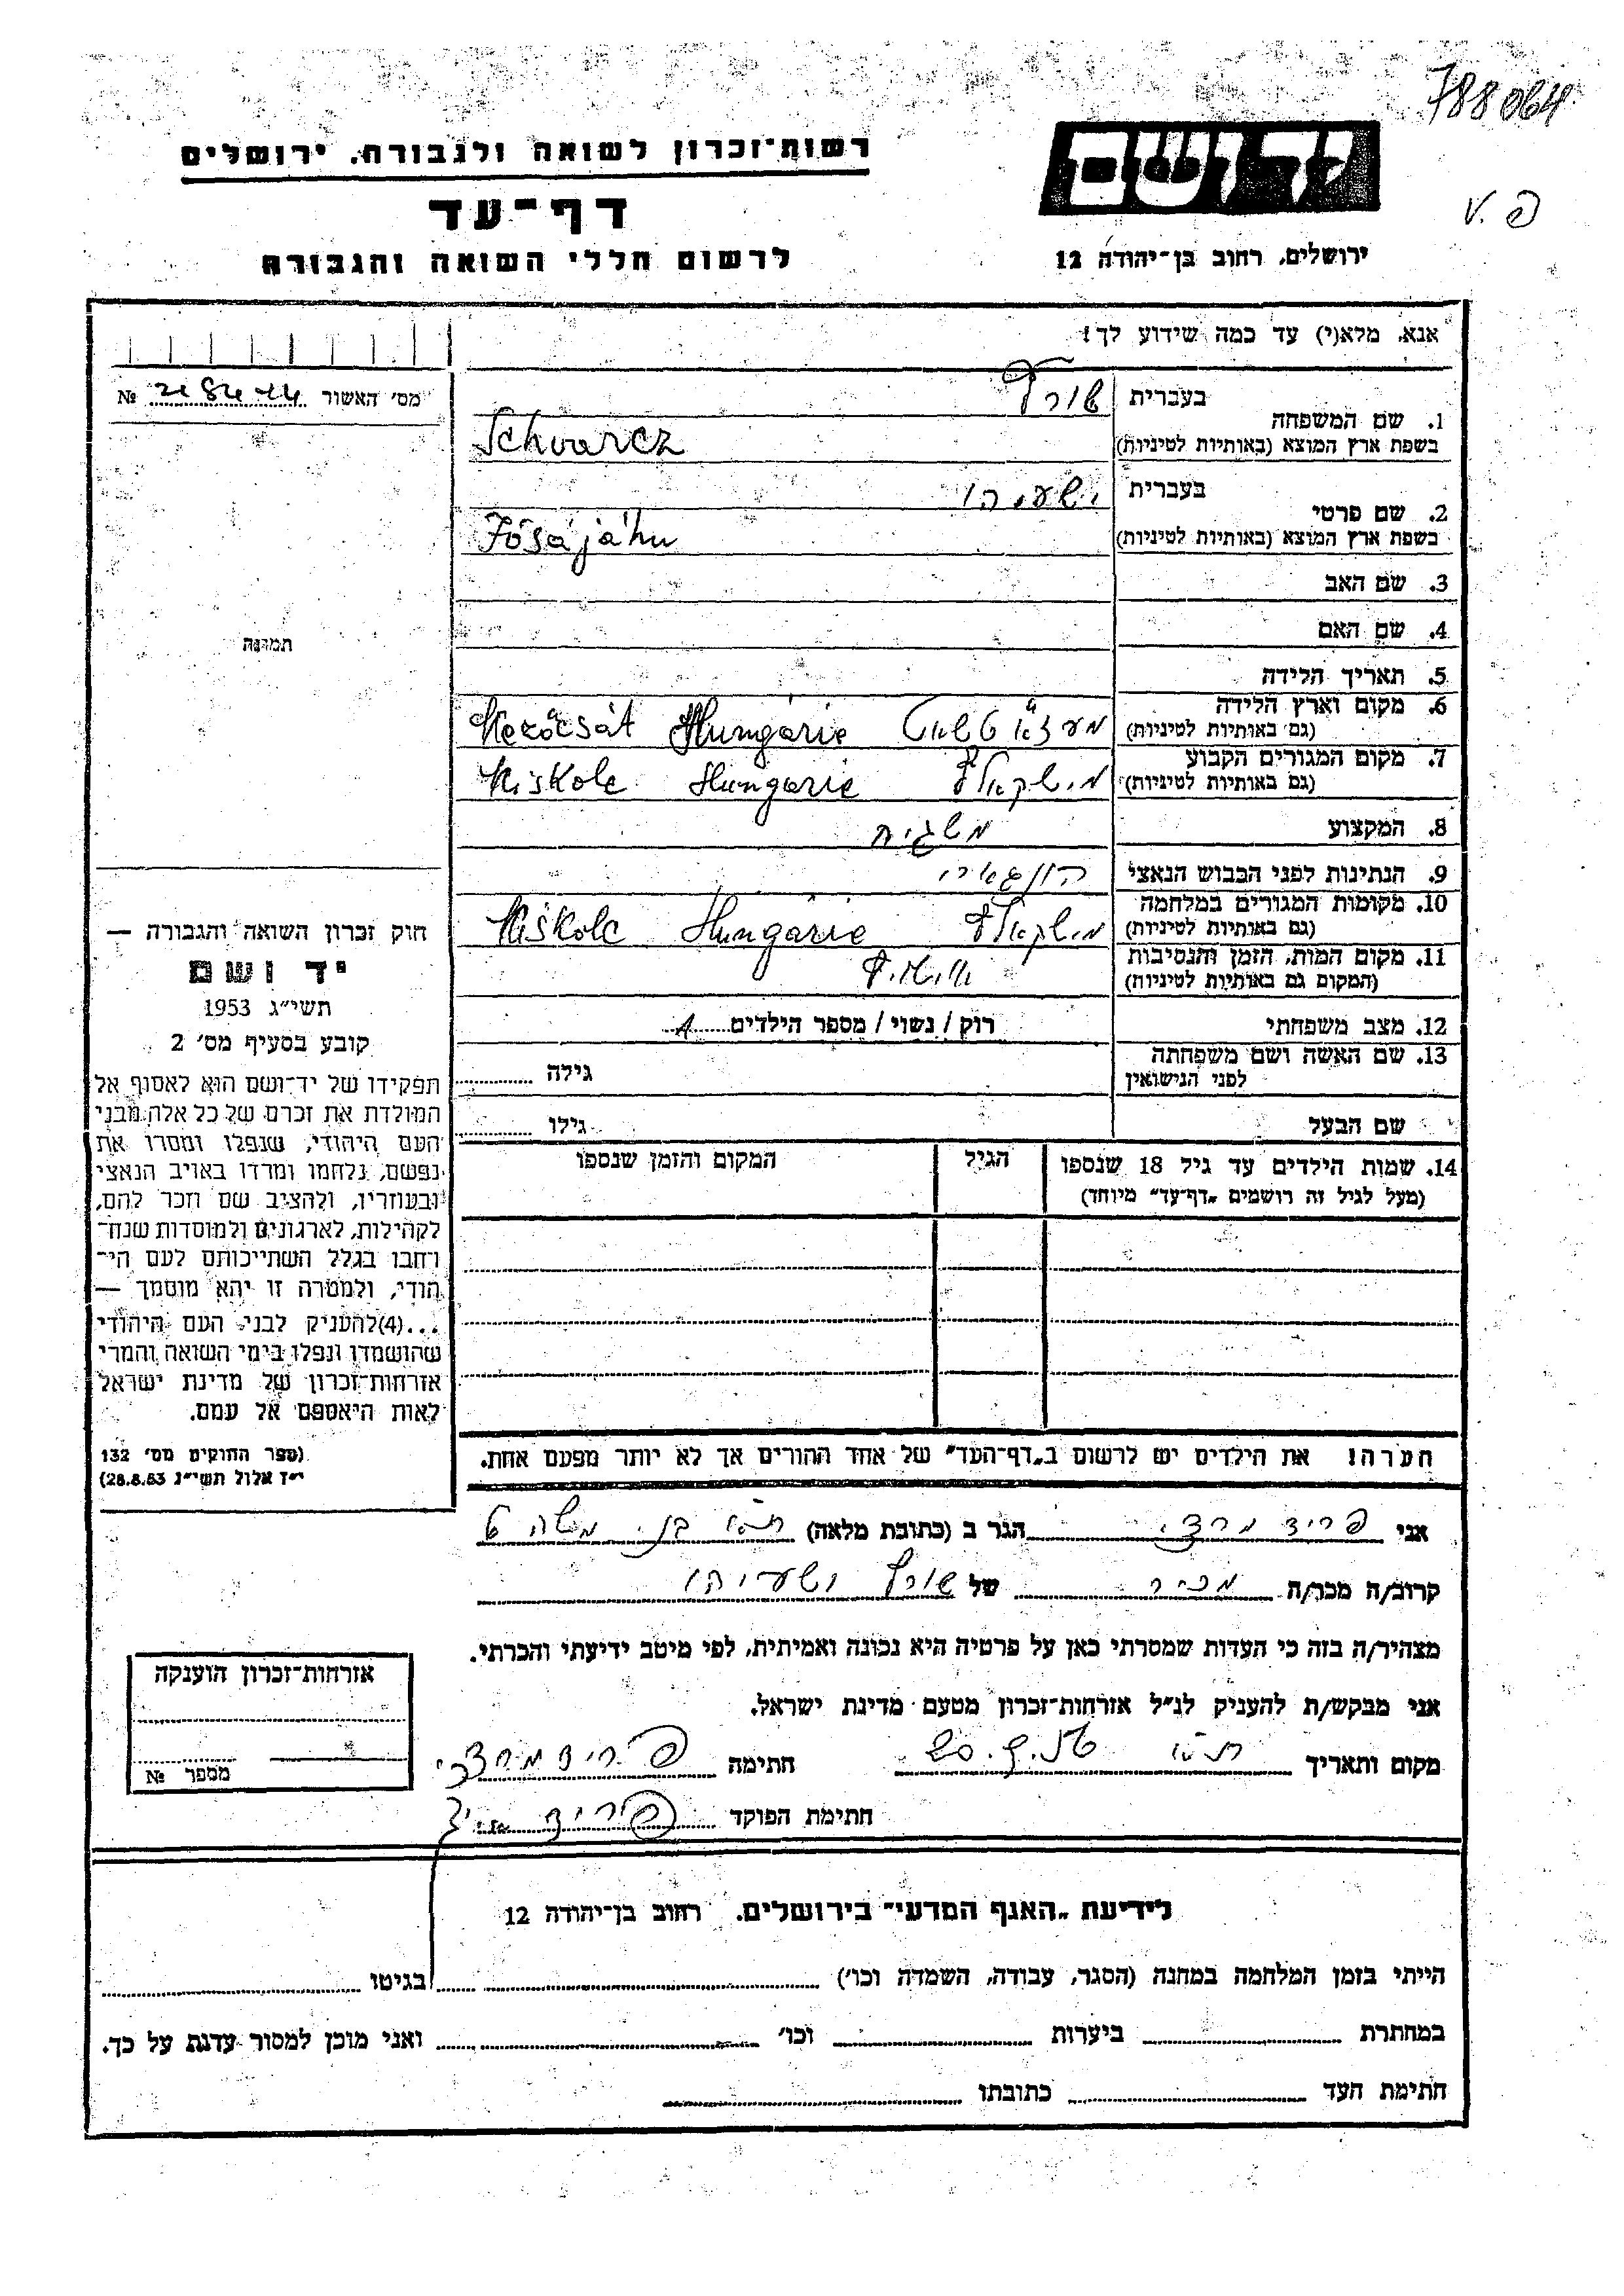 788064
רשות־זכרון לשואה ולגבורה. ירושלים
יד ושם
דף־עד
לרשום חללי השואה והגבורה
ירושלים, רחוב בן־יהודה 12
אנא, מלא(י) עד כמה שידוע לך!
מס׳ האשור №
1. שם המשפחה
בעברית שורץ
בשפת ארץ המוצא (באותיות לטיניות) Schvarcz
2. שם פרטי
בעברית ישעיהו
בשפת ארץ המוצא (באותיות לטיניות) Jósájáhu
3. שם האב
4. שם האם
תמונה
5. תאריך הלידה
6. מקום וארץ הלידה
(גם באותיות לטיניות) Mezőcsát Hungárie
7. מקום המגורים הקבוע
(גם באותיות לטיניות) מישקאלץ Miskolc Hungárie
8. המקצוע משגיח
9. הנתינות לפני הכבוש הנאצי הונגארי
10. מקומות המגורים במלחמה
(גם באותיות לטיניות) מישקאלץ Miskolc Hungárie
11. מקום המות, הזמן והנסיבות
(המקום גם באותיות לטיניות)
12. מצב משפחתי רוק / נשוי / מספר הילדים
13. שם האשה ושם משפחתה
לפני הנישואין גילה
שם הבעל גילו
14. שמות הילדים עד גיל 18 שנספו הגיל המקום והזמן שנספו
(מעל לגיל זה רושמים „דף־עד״ מיוחד)
חוק זכרון השואה והגבורה —
יד ושם
תשי״ג 1953
קובע בסעיף מס׳ 2
תפקידו של יד־ושם הוא לאסוף אל
המולדת את זכרם של כל אלה מבני
העם היהודי, שנפלו ומסרו את
נפשם, נלחמו ומרדו באויב הנאצי
ובעוזריו, ולהציב שם וזכר להם,
לקהילות, לארגונים ולמוסדות שנח־
רחבו בגלל השתייכותם לעם הי־
הודי, ולמטרה זו יהא מוסמך —
...(4)להעניק לבני העם היהודי
שהושמדו ונפלו בימי השואה והמרי
אזרחות־זכרון של מדינת ישראל
לאות היאספם אל עמם.
(ספר החוקים מס׳ 132
י״ז אלול תשי״ג 28.8.53)
הערה! את הילדים יש לרשום ב„דף־העד״ של אחד ההורים אך לא יותר מפעם אחת.
אני פריד מרדכי הגר ב (כתובת מלאה)
קרוב/ה מכר/ה מכיר של שורץ ישעיהו
מצהיר/ה בזה כי העדות שמסרתי כאן על פרטיה היא נכונה ואמיתית, לפי מיטב ידיעתי והכרתי.
אני מבקש/ת להעניק לנ״ל אזרחות־זכרון מטעם מדינת ישראל.
מקום ותאריך חתימה פריד מרדכי
חתימת הפוקד
אזרחות־זכרון הוענקה
מספר №
לידיעת „האגף המדעי״ בירושלים. רחוב בן־יהודה 12
הייתי בזמן המלחמה במחנה (הסגר, עבודה, השמדה וכו׳) בגיטו
במחתרת ביערות וכו׳ ואני מוכן למסור עדות על כך.
חתימת העד כתובתו